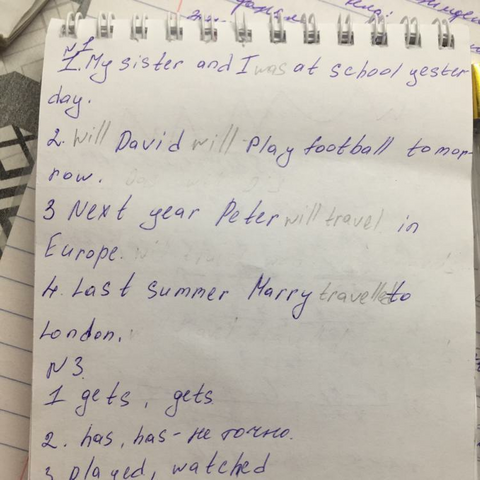 N 1
1. My sister and I was at school yester
day.
2. Will David will play football tomor-
row.
3 Next year Peter will travel in
Europe.
4. Last summer Marry travelled to
London.
N 3
1 gets, gets
2. has, has - не точно.
3 played, watched